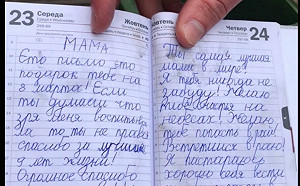 23 Середа
Жовтень
МАМА
Это письмо это
подарок тебе на
8 марта! Если
ты думаеш что
зря меня воспитывала
то ты не права
спасибо за лучшие
9 лет жизни!
Огромное спасибо
Жовтень
Четвер 24
Ты самая лучшая
мама в мире!
Я тебя никогда не
забуду! Желаю
на
небесах. Желаю
тебе попасть в рай!
Встретимся в раю!
Я постараюсь
хорошо себя вести